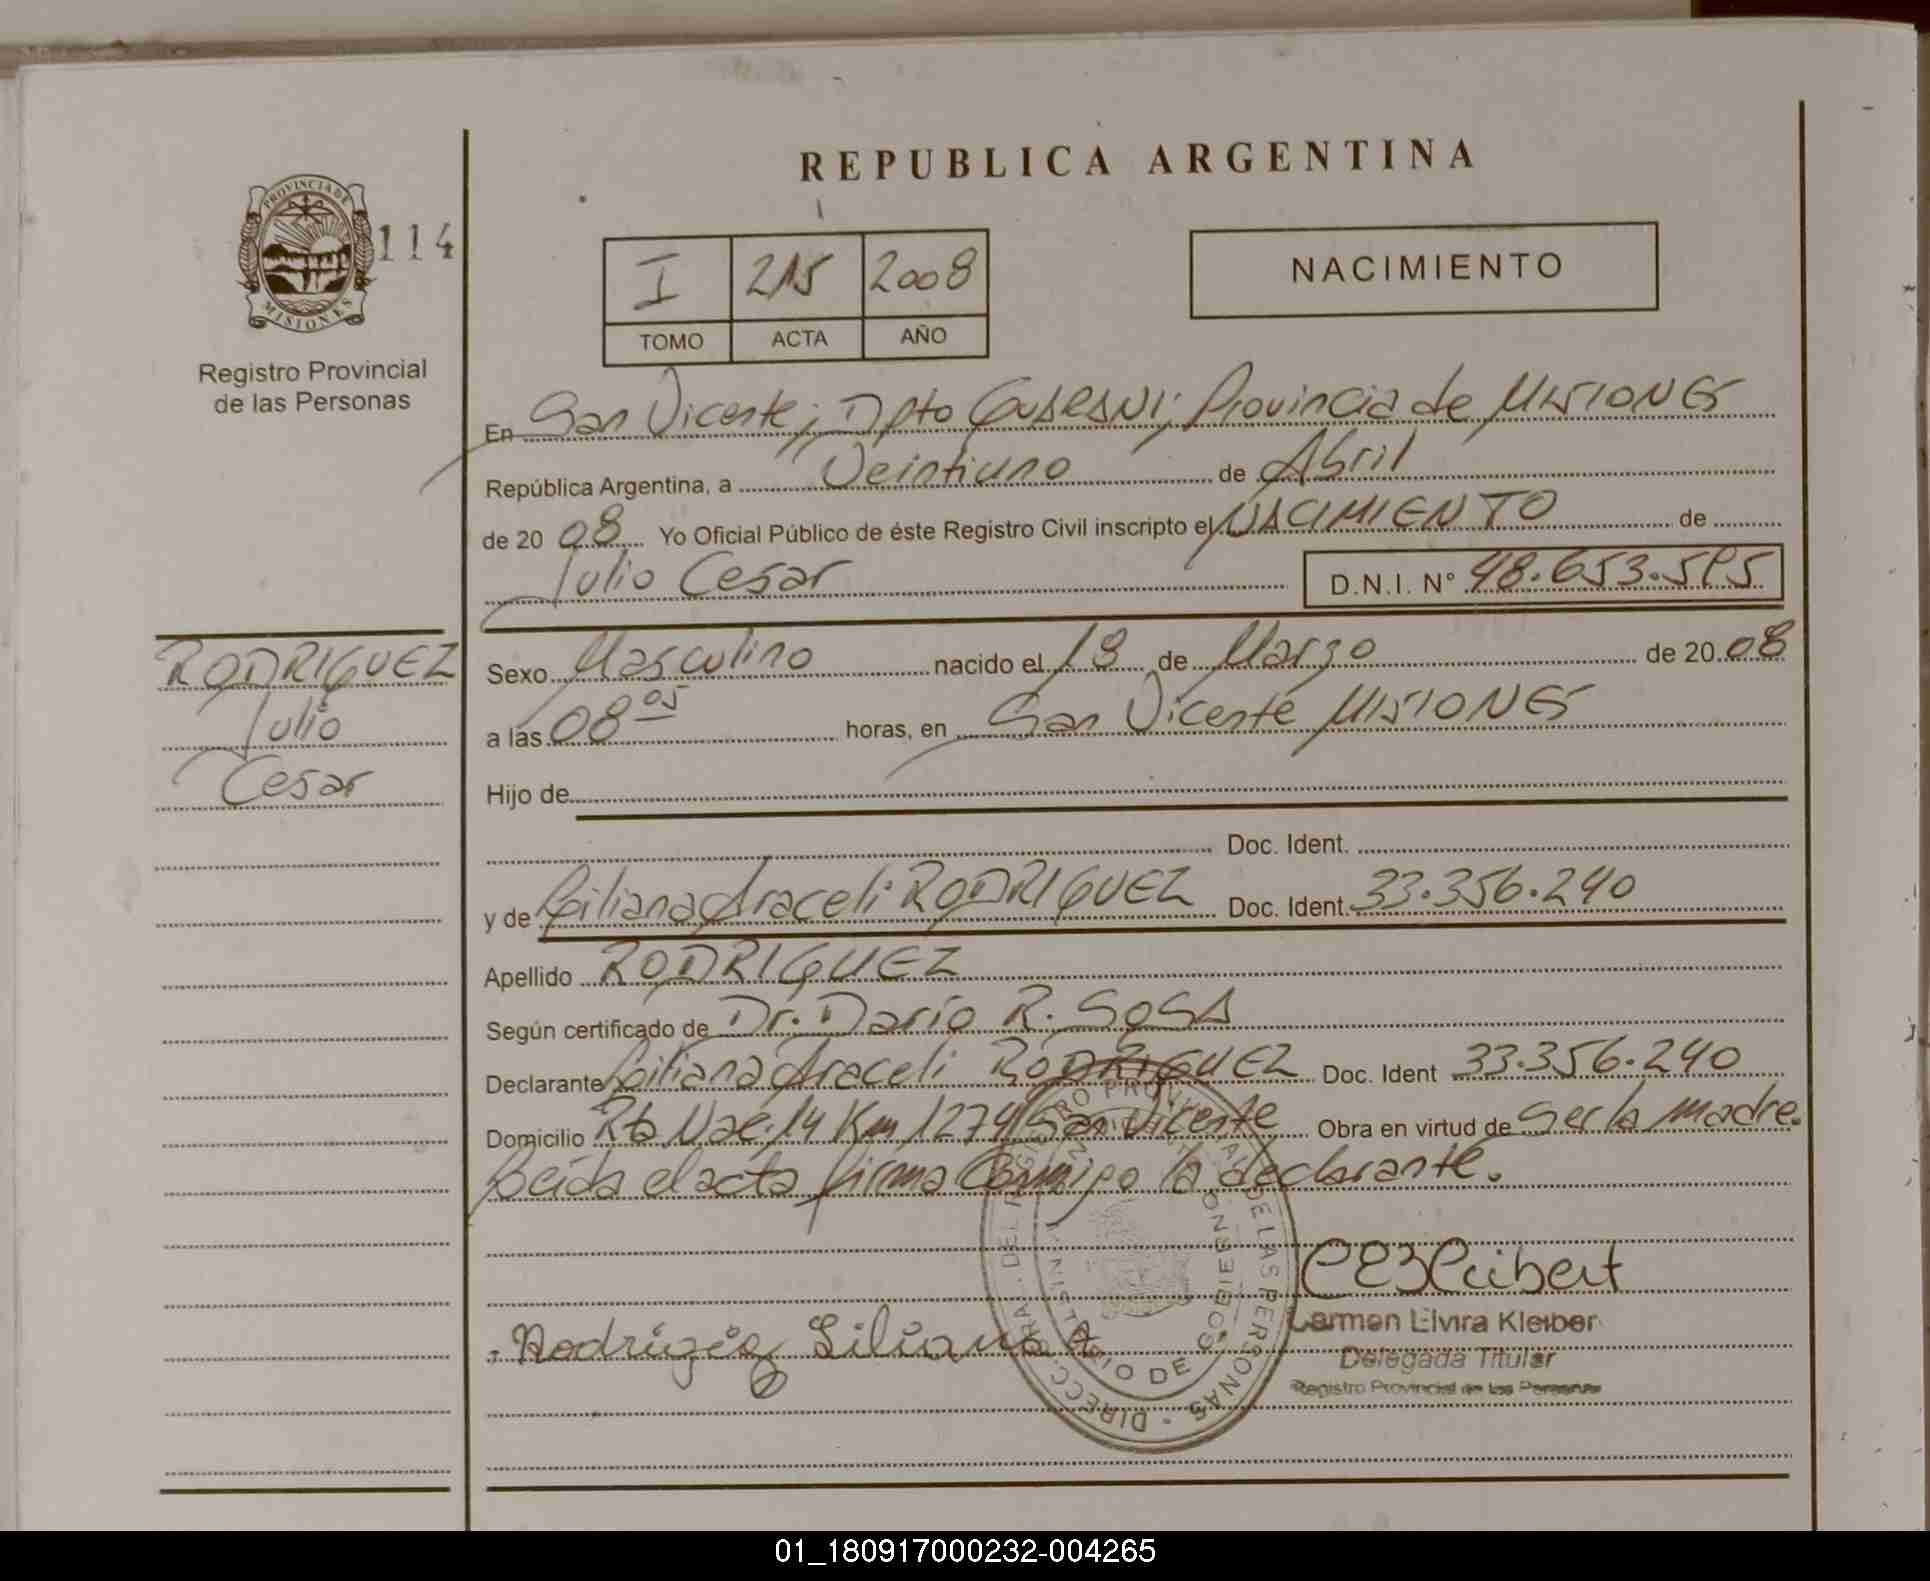 REPUBLICA ARGENTINA
PROVINCIA DE
MISIONES
114
Registro Provincial
de las Personas
I 215 2008
TOMO ACTA AÑO
NACIMIENTO
En San Vicente; Dpto GUARANI; Provincia de MISIONES
República Argentina, a Veintiuno de Abril
de 20 08 Yo Oficial Público de éste Registro Civil inscripto el NACIMIENTO de
Julio Cesar D.N.I. Nº 48.653.595
RODRIGUEZ
Julio
Cesar
Sexo Masculino nacido el 18 de Marzo de 20 08
a las 08 05 horas, en San Vicente MISIONES
Hijo de
Doc. Ident.
y de Liliana Araceli RODRIGUEZ Doc. Ident. 33.356.240
Apellido RODRIGUEZ
Según certificado de Dr. Darío R. SOSA
Declarante Liliana Araceli RODRIGUEZ Doc. Ident 33.356.240
Domicilio Rta Nac. 14 Km 1274 San Vicente Obra en virtud de ser la madre.
Leida el acta firma Conmigo la declarante.
Rodriguez Liliana A
Carmen Elvira Kleiber
Delegada Titular
Registro Provincial de las Personas
01_180917000232-004265